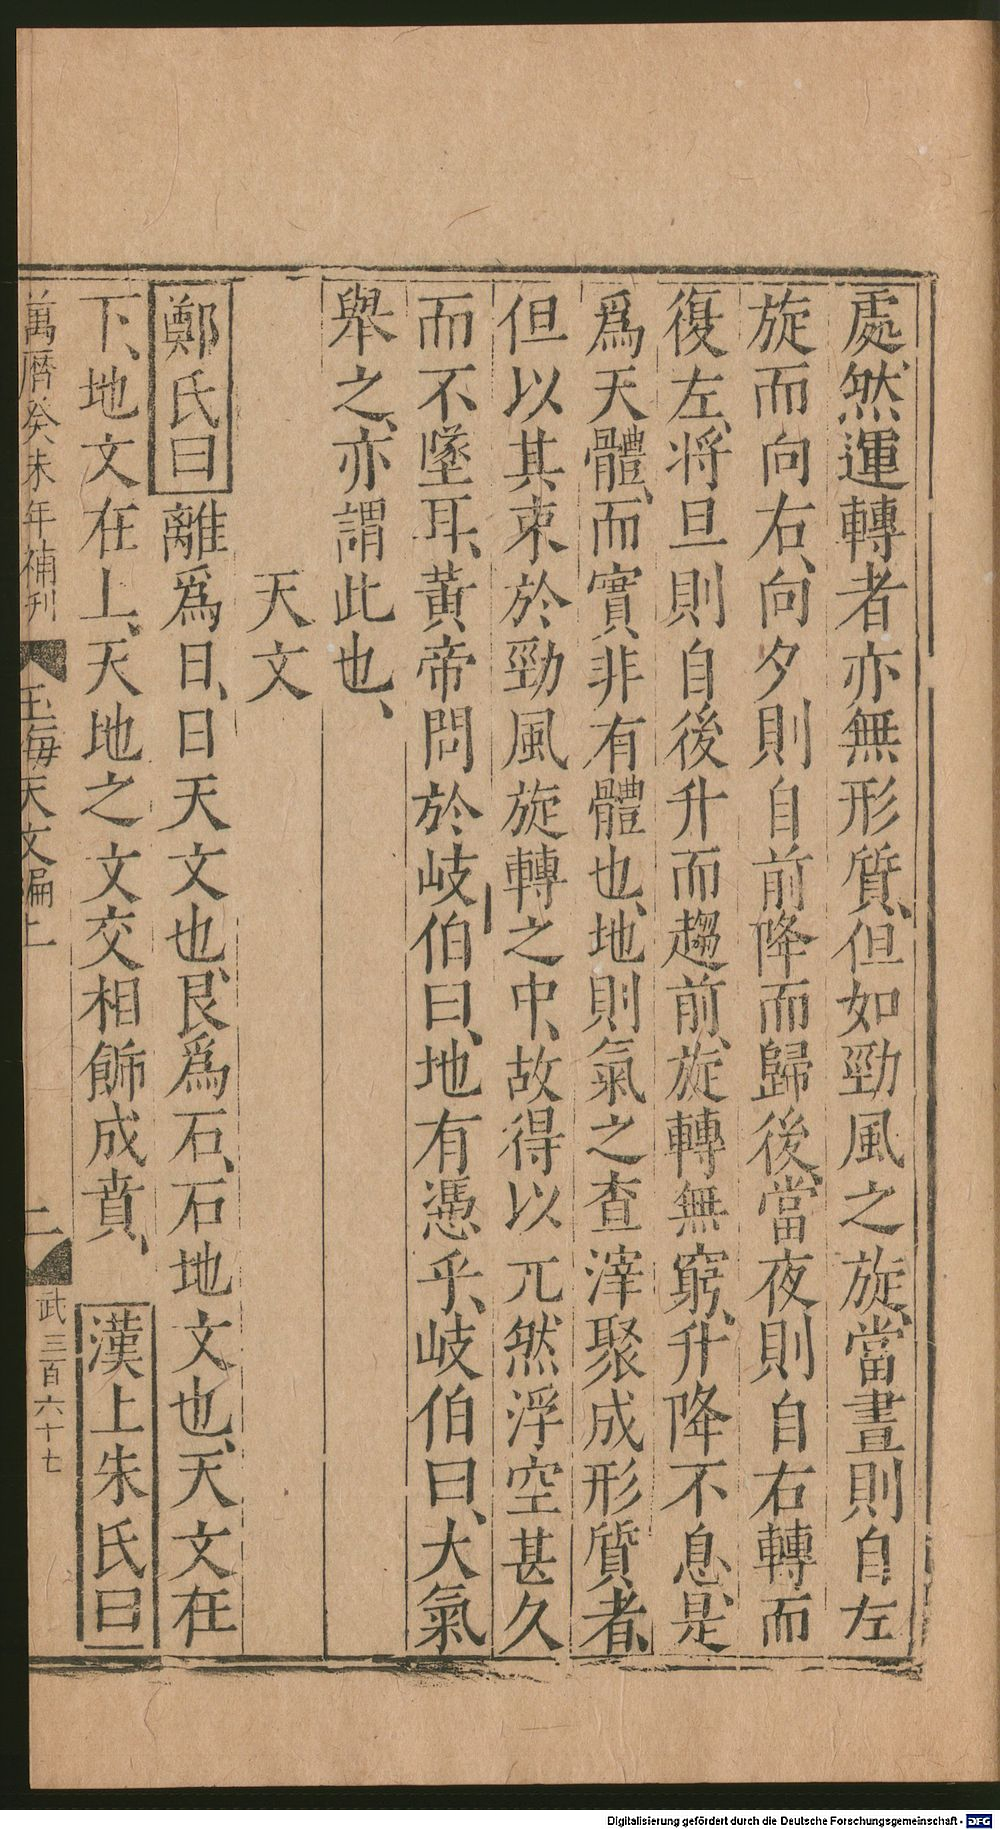 處、然運轉者亦無形質、但如勁風之旋、當晝則自左
旋而向右、向夕則自前降而歸後、當夜則自右轉而
復左、將旦則自後升而趨前、旋轉無窮、升降不息、是
爲天體、而實非有體也、地則氣之查滓聚成形質者、
但以其束於勁風旋轉之中、故得以兀然浮空甚久
而不墜耳、黃帝問於岐伯曰、地有憑乎、岐伯曰、大氣
舉之、亦謂此也、
天文
鄭氏曰離爲日、日天文也、艮爲石、石地文也、天文在
下、地文在上、天地之文交相飾成賁、漢上朱氏曰
萬曆癸未年補刊 玉海天文編上 二 武三百六十七
Digitalisierung gefördert durch die Deutsche Forschungsgemeinschaft - DFG